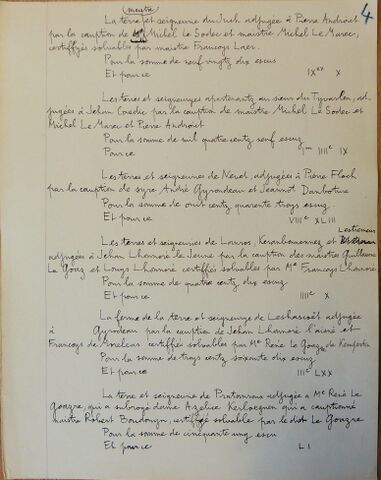 4
(mestre
La terre et seigneurie du Juch adjugée à Pierre Androict
par la caution de Michel Le Sodec et maistre Michel Le Marec,
certiffyés soluables par maistre Françoys Laer.
Pour la somme de neuf vingtz dix escus
Et pource IXxx X
Les terres et seigneuryes apartenantz au sieur du Tyvarlen, ad-
jugées à Jehan Coedic par la caution de maistre Michel Le Sodec et
Michel Le Marec et Pierre Androict
Pour la somme de mil quatre centz neuf escuz
Pource 1m IIIIc IX
Les terres et seigneuries de Nevet, adjugées à Pierre Floch
par la caution de syre André Gyrondeau et Jeannot Danboture
Pour la somme de ouit centz quarente troys escuz
Et pource VIIIc XLIII
Les terres et seigneuries de Lanros, Keranbouennec et Lestremeur
adjugées à Jehan Lhonnoré le Jeune par la caution des maistre Guillaume
Le Gouz et Louys Lhonnoré certiffiés soluables par Me Françoys Lhonnoré
Pour la somme de quatre centz dix escuz
Et pource IIIIc X
La ferme de la terre et seigneurye de Leshascoët adjugée
à Gyrodeau par la caution de Jehan Lhonnoré l'ainé et
Françoys de certiffiés soluables par Me René Le Gouz de
Pour la somme de troys centz soixente dix escuz
Et pource IIIc LXX
La terre et seigneurie de Pratanroux adjugée a Me René Le
Gouzre, qui a subrogé dame Azelice qui a cauptionné
maistre Robert Boudouyn, certiffyé soluable par ledict Le Gouzre
Pour la somme de cinquante ung escu
Et pource LI